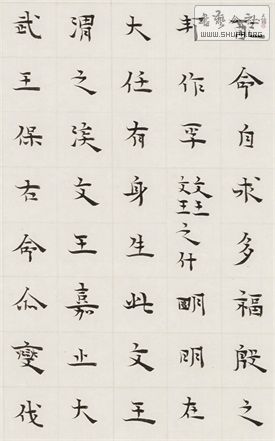 命自求多福殷之
邦作孚文王文王之什明明在
大任有身生此文王
渭之涘文王嘉止大
武王保右命尒燮伐
WWW.SHUFA.ORG